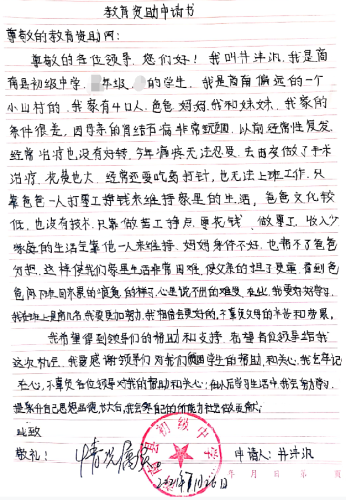 教育资助申请书
尊敬的教育资助间:
尊敬的各位领导,您们好!我叫井沣汎,我是商
南县初级中学,年级,的学生,我是商南偏远的一个
小山村的,我家有4口人,爸爸妈妈,我和妹妹,我家的
条件很差,因母亲的胃结石病非常顽固,以前经常性复发,
经常治疗也没有好转,今年痛疾无法忍受,去西安做了手术
治疗,花费也大,经常还要吃药打针,也无法上班工作,只
靠爸爸一人打零工挣钱来维持家庭的生活,爸爸文化较
低,也没有技术,只靠做苦工挣点零花钱,做零工,收入少
家庭的生活全靠他一人来维持,妈妈身体不好,也帮不了爸爸
分担,这样使我们家庭生活非常困难,使父亲的担子更重,看到爸
爸回来的疲惫的样子,心里说不出的难受,我要好好学习,
我在班上是前几名,我要更加努力,我相信会更好的,不辜负父母的
我希望得到领导们的帮助和支持,希望各位领导给我
这次机会,我衷感谢领导们对我们贫困学生的帮助和关心,我会牢记
在心,不辜负各位领导对我的帮助和关心;在以后学习生活中我会努力学习,
提升自己思想品德,长大后,我会尽自己的所能为社会做出贡献,
此致
敬礼!
情况属实。
县初级中学
申请人:井沣汎
2021年11月26日
年 月 日